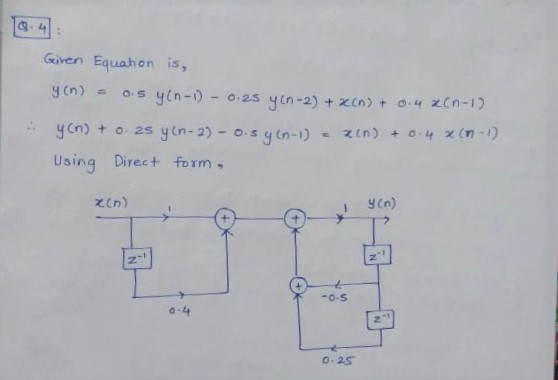 Q.4 :
Given Equation is,
y(n) = 0.5 y(n-1) - 0.25 y(n-2) + x(n) + 0.4 x(n-1)
∴ y(n) + 0.25 y(n-2) - 0.5 y(n-1) = x(n) + 0.4 x(n-1)
Using Direct form,
x(n) 1 + + 1 y(n)
z⁻¹ z⁻¹
+ -0.5
0.4 z⁻¹
0.25